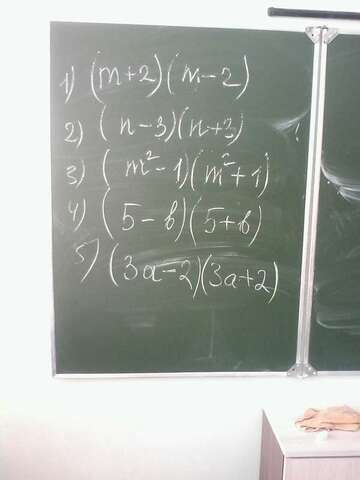 1) (m+2)(m-2)
2) (n-3)(n+3)
3) (m²-1)(m²+1)
4) (5-b)(5+b)
5) (3a-2)(3a+2)